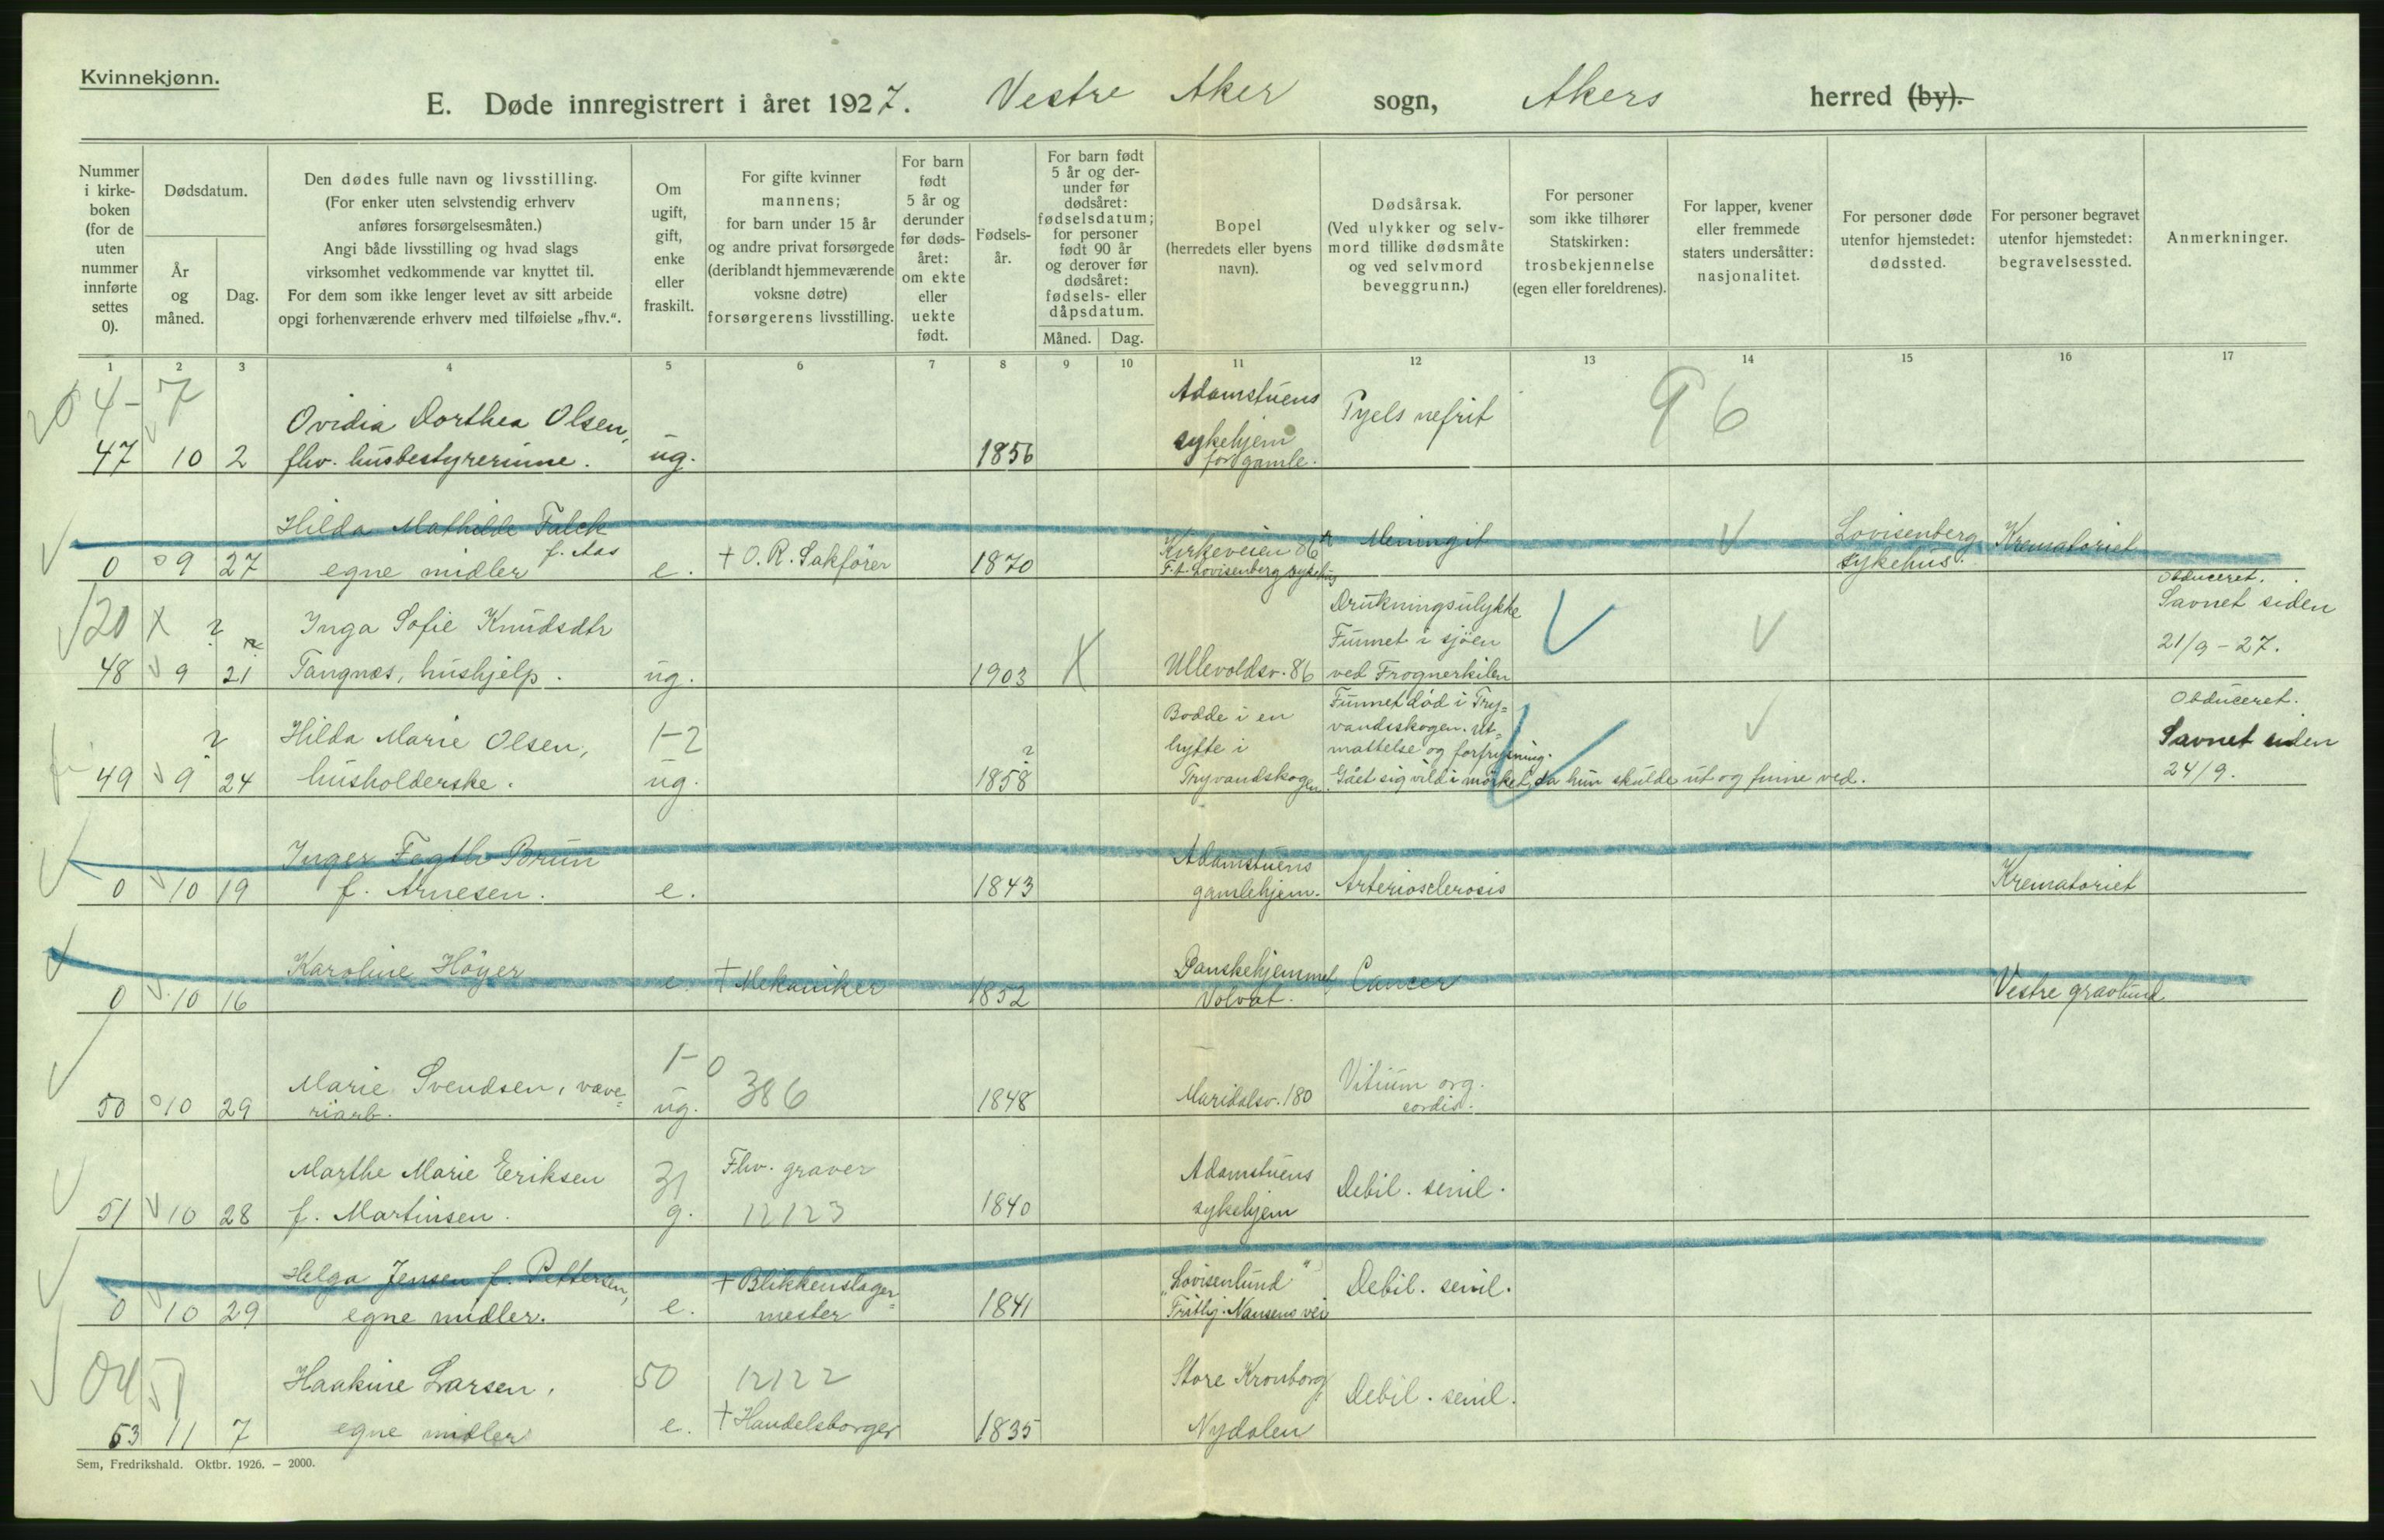 Kvinnekjønn.
E. Døde innregistrert i året 1927. Vestre Aker sogn, Akers herred (by).
Nummer i kirke-boken (for de uten nummer innførte settes 0).
Dødsdatum.
År og måned.
Dag.
Den dødes fulle navn og livsstilling.
(For enker uten selvstendig erhverv
anføres forsørgelsesmåten.)
Angi både livsstilling og hvad slags
virksomhet vedkommende var knyttet til.
For dem som ikke lenger levet av sitt arbeide
opgi forhenværende erhverv med tilføielse „fhv.“.
Om ugift, gift, enke eller fraskilt.
For gifte kvinner
mannens;
for barn under 15 år
og andre privat forsørgede
(deriblandt hjemmeværende
voksne døtre)
forsørgerens livsstilling.
For barn født 5 år og derunder før døds-året: om ekte eller uekte født.
Fødsels-år.
For barn født 5 år og der-under før dødsåret: fødselsdatum; for personer født 90 år og derover før dødsåret: fødsels- eller dåpsdatum.
Måned. Dag.
Bopel
(herredets eller byens
navn).
Dødsårsak.
(Ved ulykker og selv-
mord tillike dødsmåte
og ved selvmord
beveggrunn.)
For personer
som ikke tilhører
Statskirken:
trosbekjennelse
(egen eller foreldrenes).
For lapper, kvener
eller fremmede
staters undersåtter:
nasjonalitet.
For personer døde
utenfor hjemstedet:
dødssted.
For personer begravet
utenfor hjemstedet:
begravelsessted.
Anmerkninger.
1 2 3 4 5 6 7 8 9 10 11 12 13 14 15 16 17
204-7
96
Ovidia Dorthea Olsen, Adamstuens Pyels nefrit
47 10 2 fhv. husbestyrerinne. ug. 1856 sykehjem
for gamle.
Hilda Mathilde Falck Meningit Lovisenberg Krematoriet
f. Aas
0 9 27 egne midler e. + O. R. Sakfører 1870 Kirkeveien 86 sykehus.
F.t. Lovisenberg sykehus
Obduceret.
20 X ? Inga Sofie Knudsdtr Drukningsulykke Savnet siden
Funnet i sjøen 21/9 - 27.
48 9 21 Tangnæs, hushjelp. ug. 1903 X Ullevoldsv. 86 ved Frognerkilen
? Hilda Marie Olsen, 1-2 Bodde i en Funnet død i Try-
vandsskogen. Ut- Obduceret.
hytte i mattelse og forfrysning. Savnet siden
49 9 24 husholderske. ug. 1858 ? Tryvandskogen. Gået sig vild i mørket, da hun skulde ut og finne ved. 24/9.
Inger Fegth Brun Adamstuens
0 10 19 f. Arnesen. e. 1843 gamlehjem. Arteriosclerosis Krematoriet
Karoline Höyer e. + Mekaniker 1852 Danskehjemmet Cancer
0 10 16 Volvat. Vestre gravlund
1-0
Marie Svendsen, væve- 386 Vitium org.
50 10 29 riarb. ug. 1848 Maridalsv. 180 cordis.
Marthe Marie Eriksen 31 Fhv. graver Adamstuens Debil. senil.
51 10 28 f. Martinsen. g. 12123 1840 sykehjem
Helga Jensen f. Pettersen, + Blikkenslager- „Lovisenlund“ Debil. senil.
0 10 29 egne midler. e. mester 1841 Frithj. Nansens vei
04 51
Haakine Larsen, 50 12122 Store Kronborg Debil. senil.
53 11 7 egne midler e. + Handelsborger 1835 Nydalen
Sem, Fredrikshald. Oktbr. 1926. – 2000.